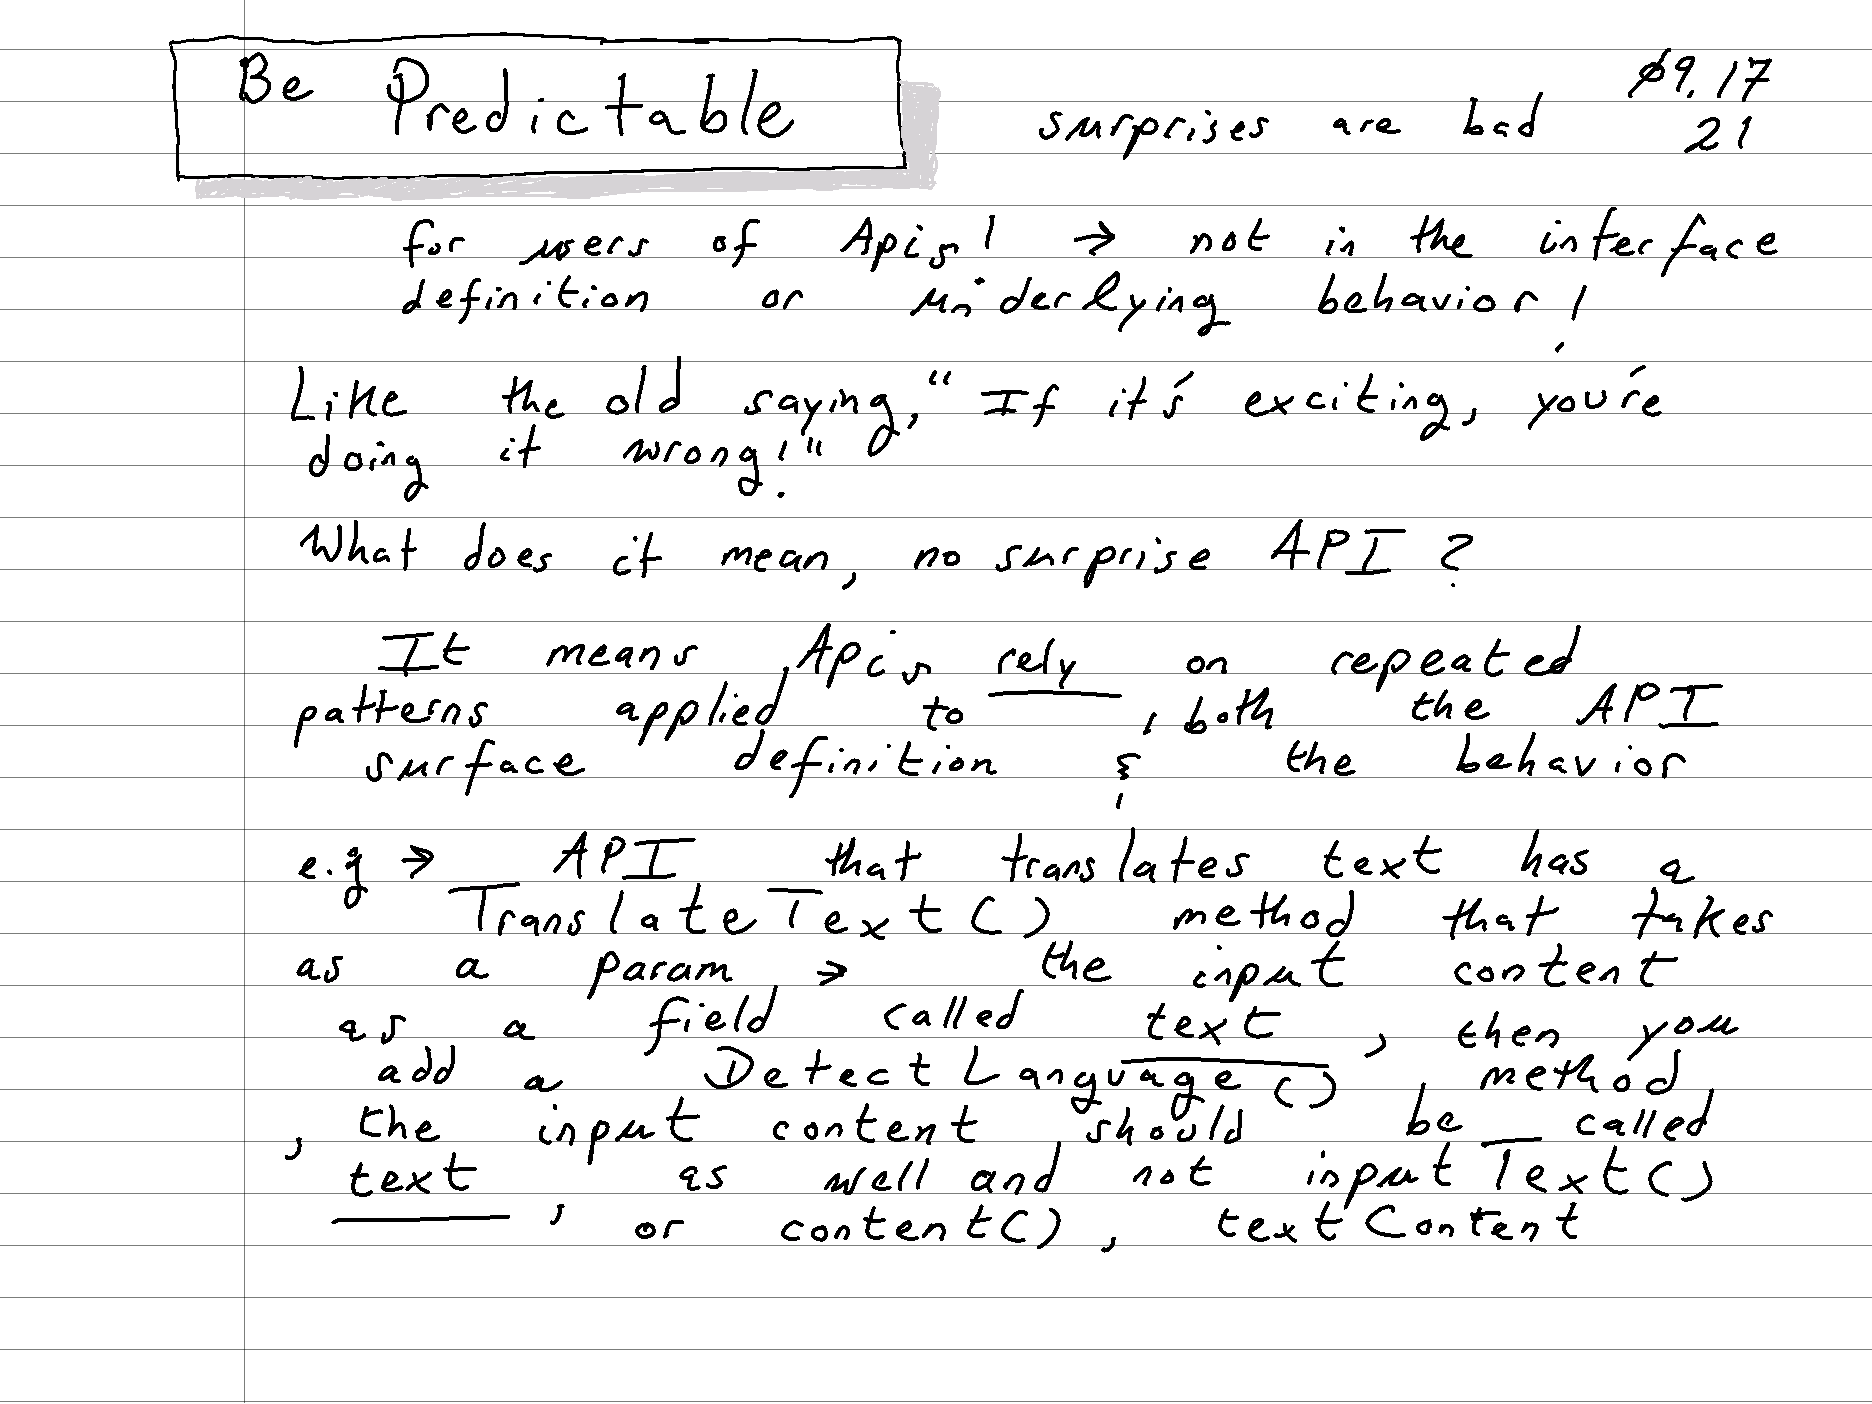 Be Predictable
surprises are bad
09.17
21
for users of Apis! → not in the interface
definition or underlying behavior!
Like the old saying, "If it's exciting, you're
doing it wrong!"
What does it mean, no surprise API?
It means Apis rely on repeated
patterns applied to, both the API
surface definition & the behavior
e.g → API that translates text has a
TranslateText() method that takes
as a param → the input content
as a field called text, then you
add a DetectLanguage() method
, the input content should be called
text, as well and not inputText()
or content(), textContent